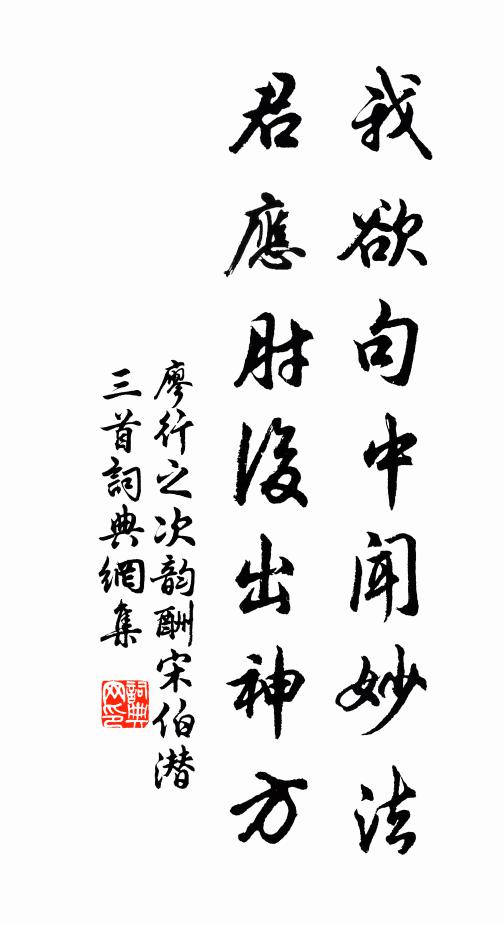 我欲句中聞妙法
君應肘後出神方
廖行之次韵酬宋伯潜
三首詞典網集
詞典
网印